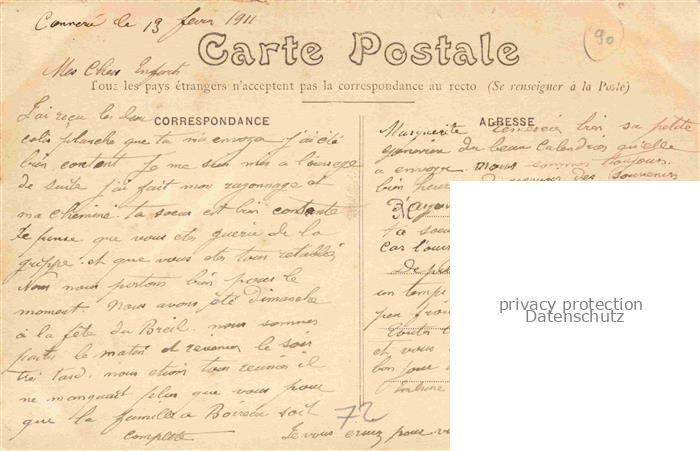 Connerré le 13 fevrier 1911
90
Carte Postale
Mes Chers Enfants
Tous les pays étrangers n'acceptent pas la correspondance au recto (Se renseigner à la Poste)
CORRESPONDANCE
J'ai reçu les deux
colis planche que tu m'a envoyer j'ai été
bien content je me suis mis a l'ouvrage
de suite j'ai fait mon rayonnage et
ma cheminé. ta soeur est bien contente
Je pense que vous etes guerie de la
grippe. et que vous etes tous retablis
Nous nous portons bien pour le
moment. Nous avons été dimanche
à la fête du Breil. nous sommes
partis le matin et revenus le soir
tres tard. nous etions tous reunis il
ne manquait plus que vous pour
que la famille a Boireau soit
complete
72
Je vous ecrirez pour v
ADRESSE
Marguerite remercie bien sa petite
Genevieve du beau Calendrier qu'elle
a envoyer nous sommes toujours
bien heureux de recevoir des souvenirs
ta soeur
car l'ouv
de p
un temps
peu froid
toutes
et vous
bon jour
privacy protection
Datenschutz